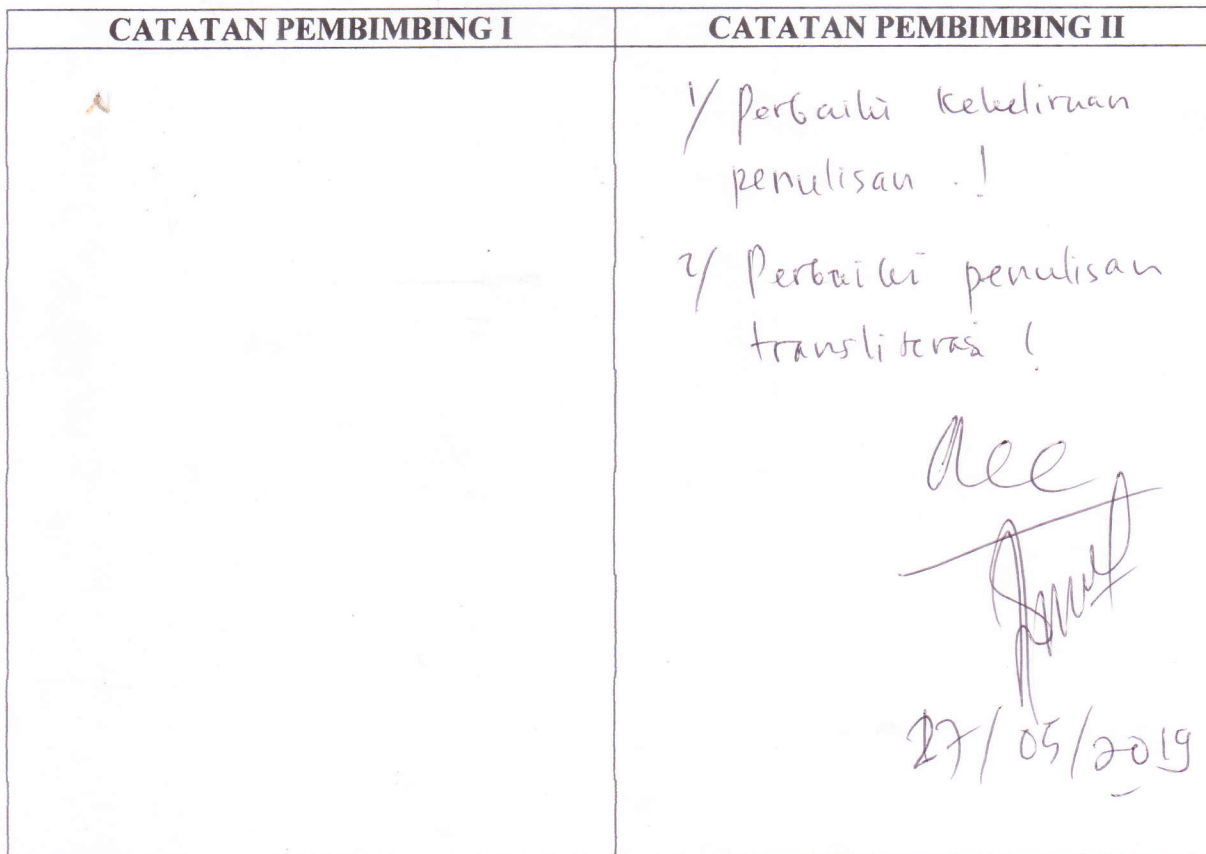 CATATAN PEMBIMBING I
CATATAN PEMBIMBING II
1/ Perbaiki Kekeliruan
penulisan !
2/ Perbaiki penulisan
transliterasi !
acc
27/05/2019